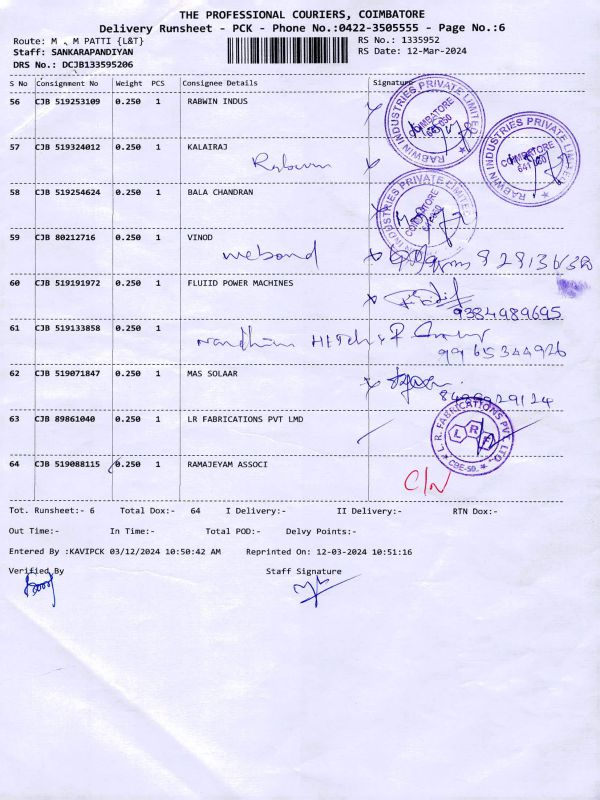 THE PROFESSIONAL COURIERS, COIMBATORE
Delivery Runsheet - PCK - Phone No.:0422-3505555 - Page No.:6
Route: M . M PATTI {L&T}
RS No.: 1335952
Staff: SANKARAPANDIYAN
RS Date: 12-Mar-2024
DRS No.: DCJB133595206
S No Consignment No Weight PCS Consignee Details Signature
56 CJB 519253109 0.250 1 RABWIN INDUS
RABWIN INDUSTRIES PRIVATE LIMITED COIMBATORE
57 CJB 519324012 0.250 1 KALAIRAJ
Rabwin
RABWIN INDUSTRIES PRIVATE LIMITED COIMBATORE
58 CJB 519254624 0.250 1 BALA CHANDRAN
RABWIN INDUSTRIES PRIVATE LIMITED COIMBATORE
59 CJB 80212716 0.250 1 VINOD
webond
60 CJB 519191972 0.250 1 FLUIID POWER MACHINES
9384989695
61 CJB 519133858 0.250 1
9965344926
62 CJB 519071847 0.250 1 MAS SOLAAR
63 CJB 89861040 0.250 1 LR FABRICATIONS PVT LMD
L. R. FABRICATIONS PVT. LTD. LRF CBE-50.
64 CJB 519088115 0.250 1 RAMAJEYAM ASSOCI
C/N
Tot. Runsheet:- 6 Total Dox:- 64 I Delivery:- II Delivery:- RTN Dox:-
Out Time:- In Time:- Total POD:- Delvy Points:-
Entered By :KAVIPCK 03/12/2024 10:50:42 AM Reprinted On: 12-03-2024 10:51:16
Verified By Staff Signature